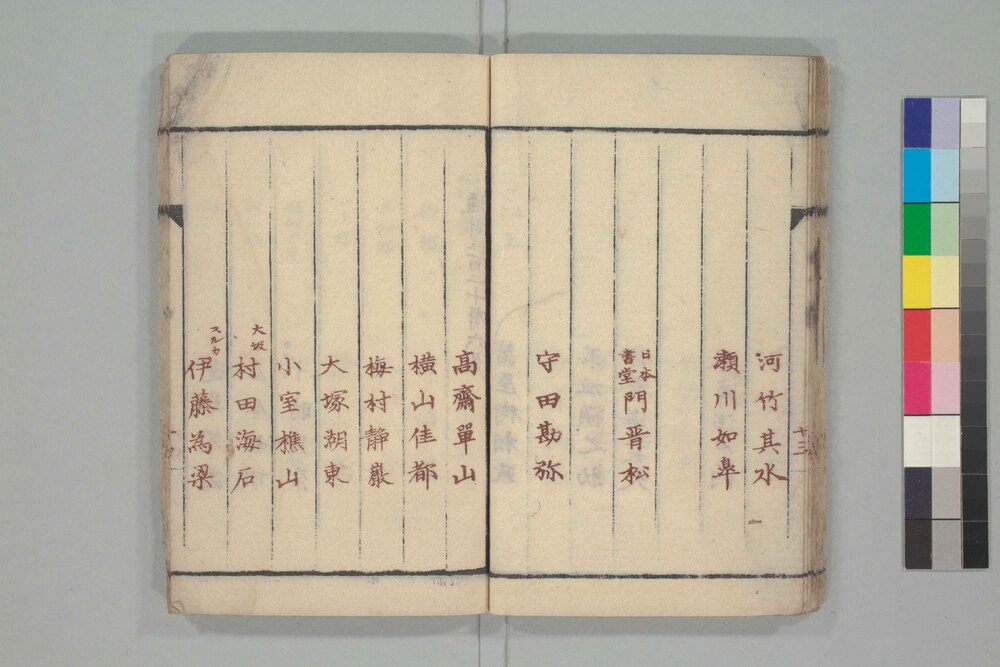 河竹其水
瀬川如皐
日本
書堂
門晋松
守田勘弥
高齋單山
横山佳都
梅村静巖
大塚湖東
小室樵山
大坂
村田海石
スルカ
伊藤為梁
十三